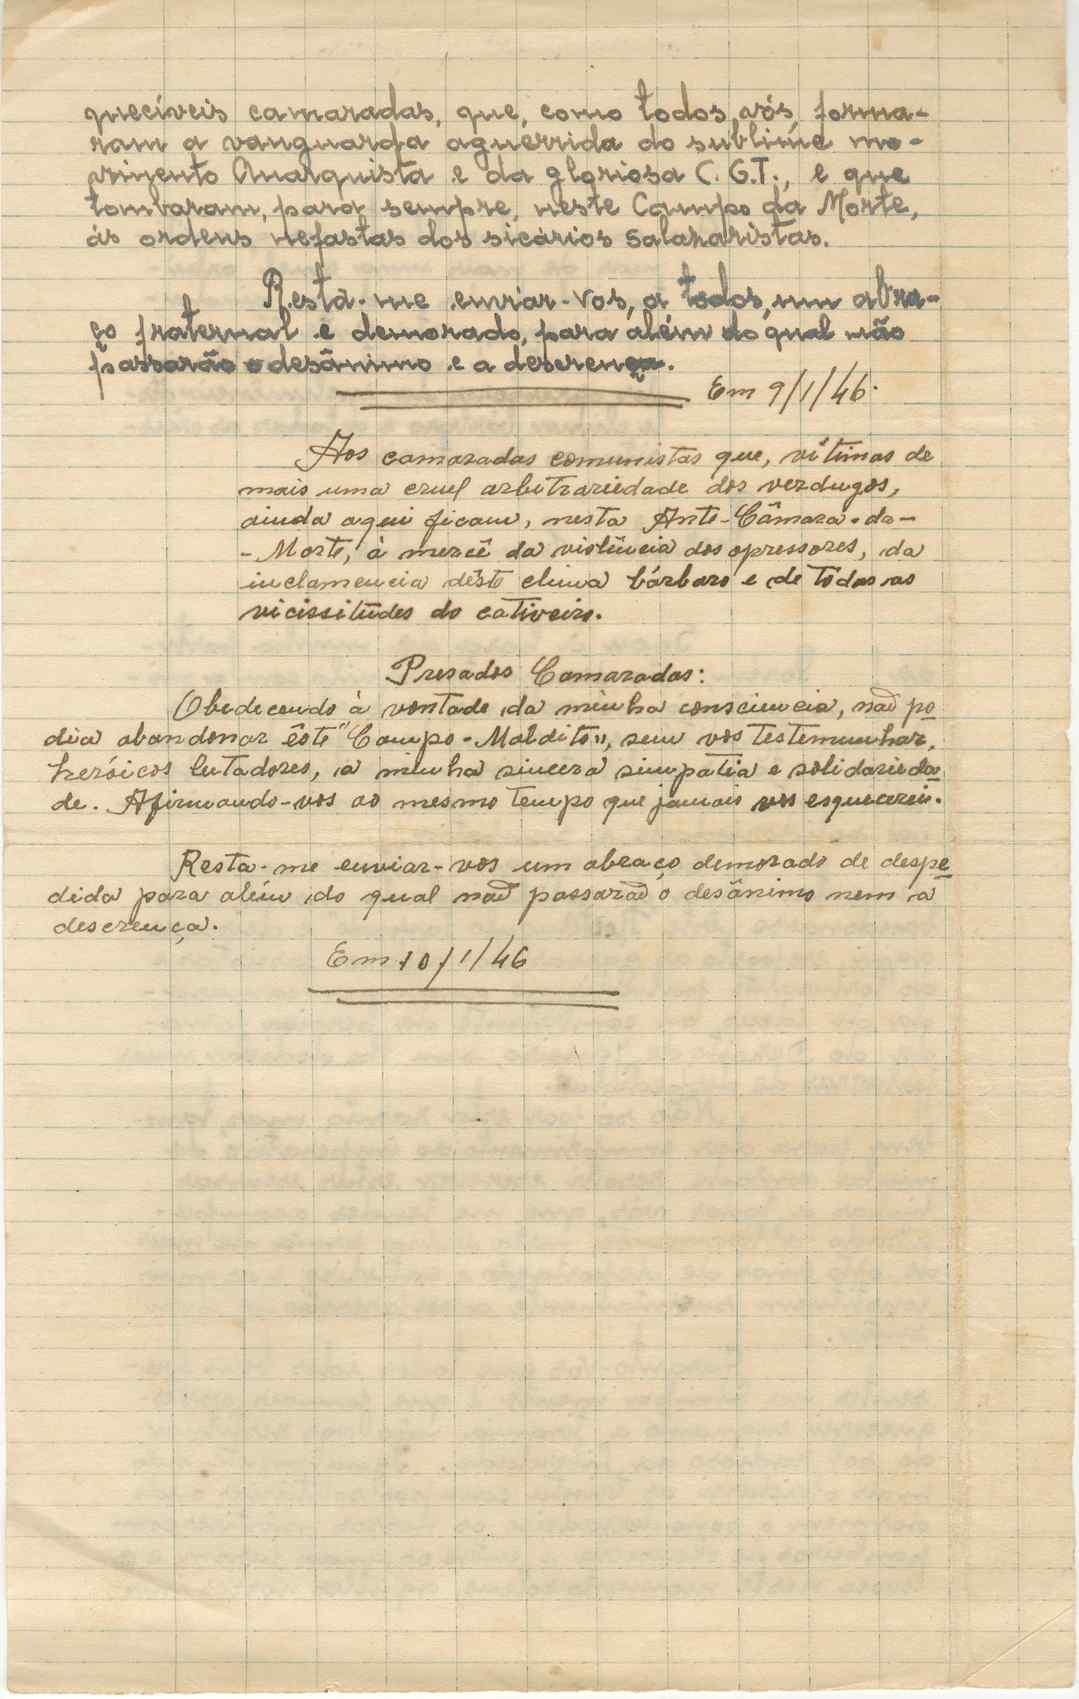 quecíveis camaradas, que, como todos vós, forma-
ram a vanguarda aguerrida do sublime mo-
vimento Anarquista e da gloriosa C. G. T., e que
tombaram, para sempre, neste Campo da Morte,
ás ordens nefastas dos sicários salazaristas.
Resta-me enviar-vos, a todos, um abra-
ço fraternal e demorado, para além do qual não
passarão o desânimo e a descrença.
Em 9/1/46.
Aos camaradas comunistas que, vítimas de
mais uma cruel arbitrariedade dos verdugos,
ainda aqui ficam, nesta Ante-Câmara-da-
-Morte, à mercê da violência dos opressores, da
inclamencia dêste clima bárbaro e de tôdas as
vicissitudes do cativeiro.
Presados Camaradas:
Obedecendo à vontade da minha consciencia, não po
dia abandonar êste "Campo-Maldito", sem vos testemunhar,
heróicos lutadores, a minha sincera simpatia e solidarieda
de. Afirmando-vos ao mesmo tempo que jamais vos esquecerei.
Resta-me enviar-vos um abraço demorado de despe
dida para além do qual não passarão o desânimo nem a
descrença.
Em 10/1/46